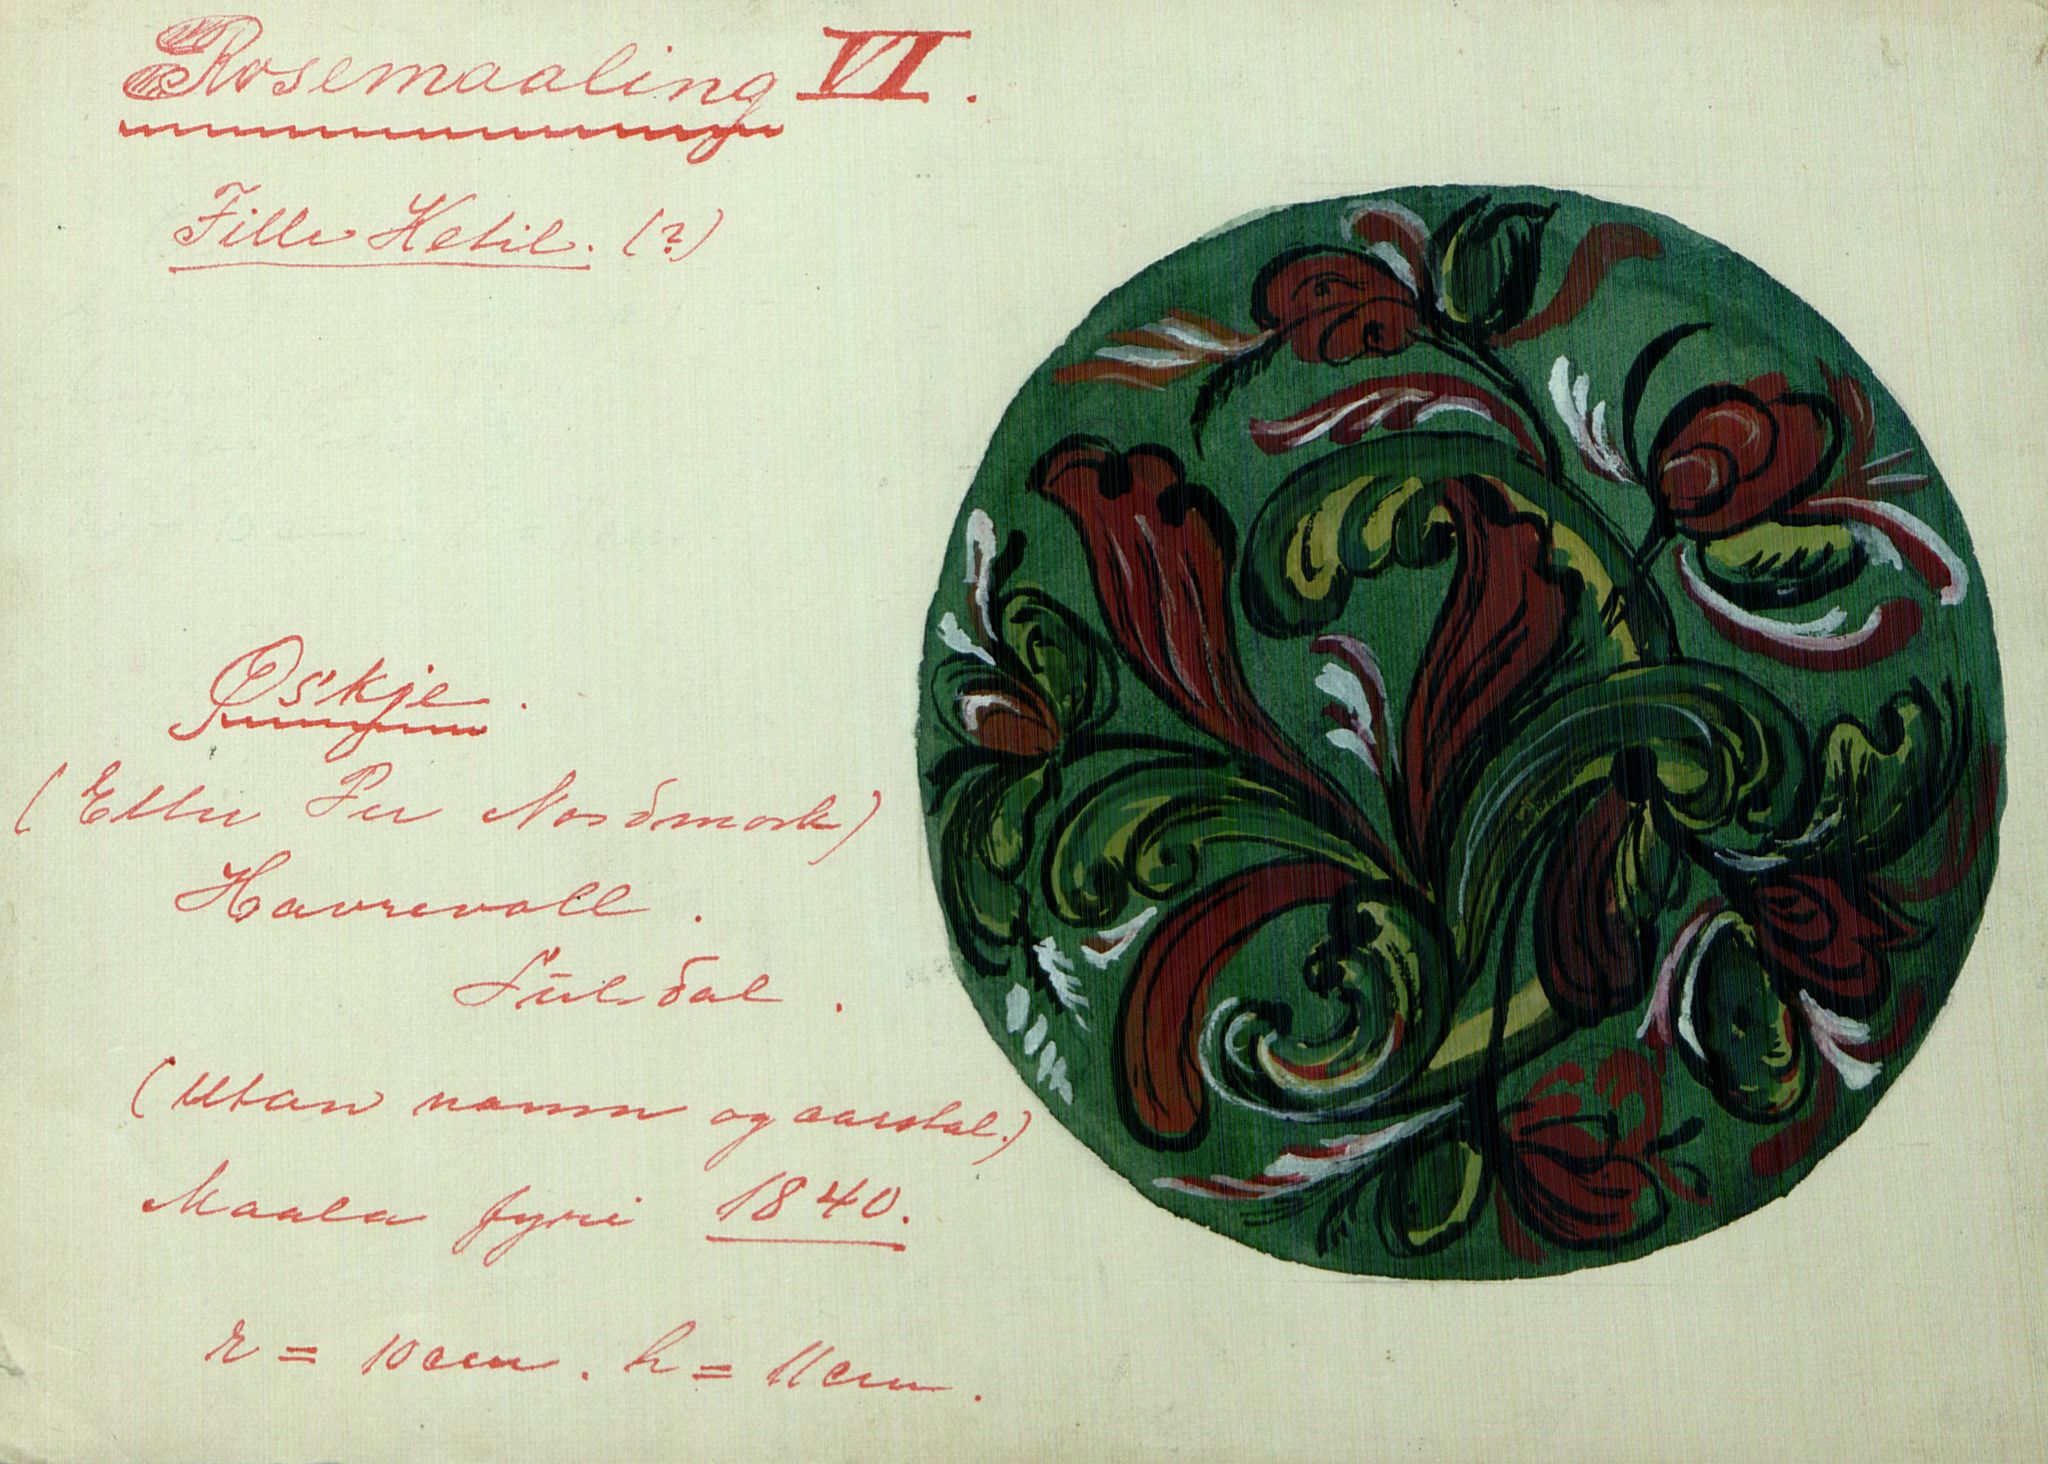 Rosemaaling VI.
Fille Ketil. (?)
Øskje.
(Etter Per Nordmork)
Havrevoll.
Suldal.
(Utan namn og aarstal.)
Maala fyri 1840.
r = 10 cm. h = 11 cm.